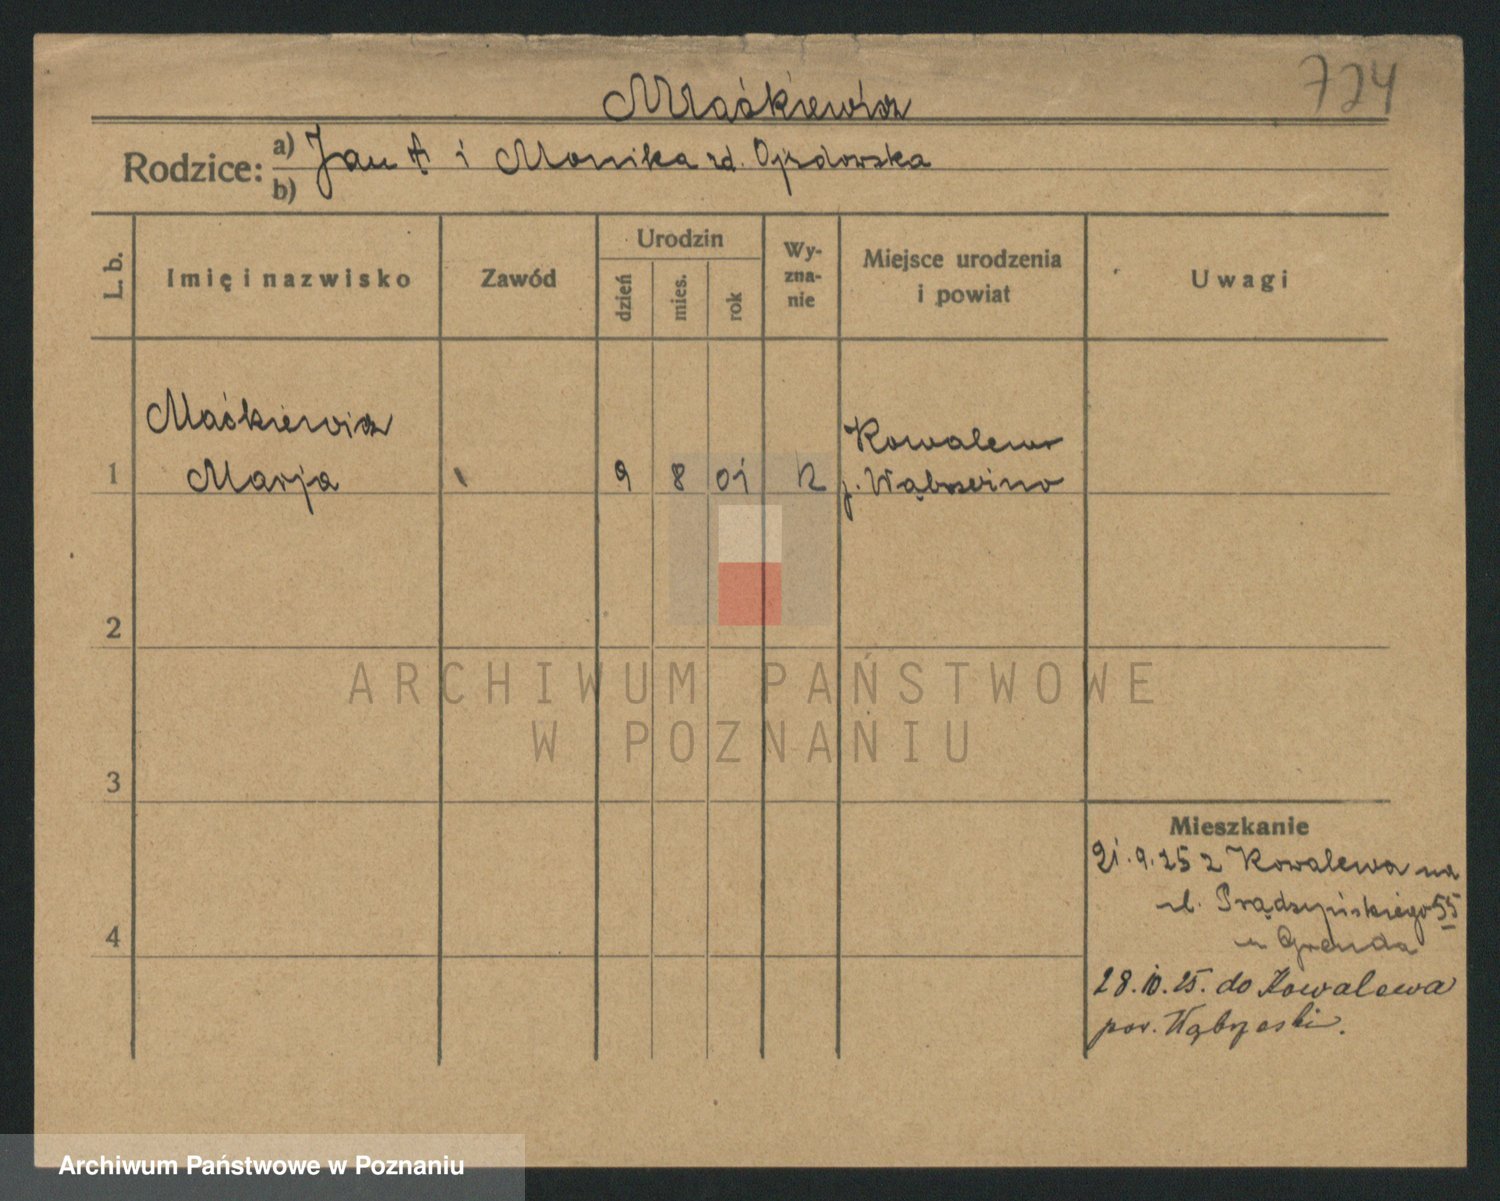 724
Maćkiewicz
Rodzice: a) Jan † i Monika zd. Ojzdowska
b)
L. b.
Imię i nazwisko
Zawód
Urodzin
dzień
mies.
rok
Wy-
zna-
nie
Miejsce urodzenia
i powiat
Uwagi
Maćkiewicz
Marja
1
9 8 01
Kowalewo
2
3
4
Mieszkanie
21.9.25 z Kowalewa na
ul. Prądzyńskiego 55
u Grenda
28.10.25. do Kowalewa
pow. Wąbrzeski.
ARCHIWUM PAŃSTWOWE
W POZNANIU
Archiwum Państwowe w Poznaniu